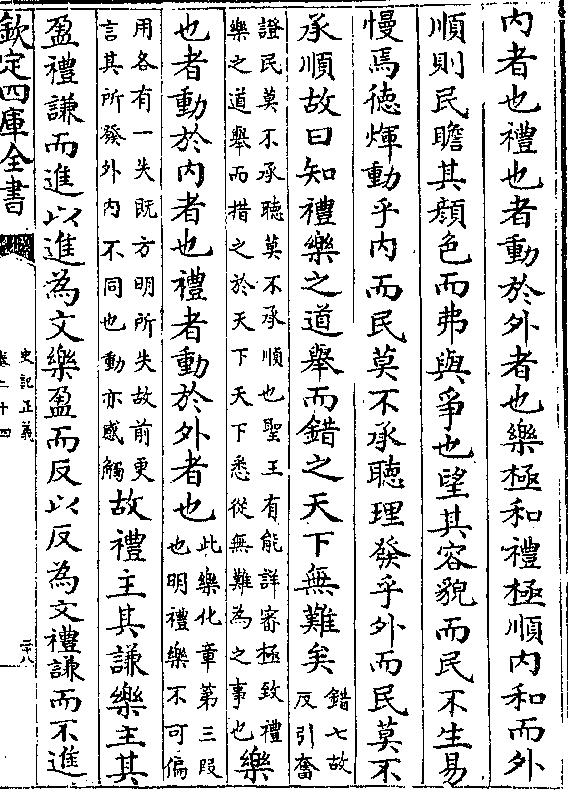 内者也禮也者動於外者也樂極和禮極順内和而外
順則民瞻其顔色而弗與爭也望其容貌而民不生易
慢焉徳煇動乎内而民莫不承聽理發乎外而民莫不
承順故曰知禮樂之道舉而錯之天下無難矣錯七故
反引奮
證民莫不承聽莫不承順也聖王有能詳審極致禮
樂之道舉而措之於天下天下悉從無難為之事也樂
也者動於内者也禮者動於外者也此樂化章第三段
也明禮樂不可偏
用各有一失既方明所失故前更
言其所發外内不同也動亦感觸故禮主其謙樂主其
盈禮謙而進以進為文樂盈而反以反為文禮謙而不進
欽定四庫全書
史記正義
卷二十四
二十八